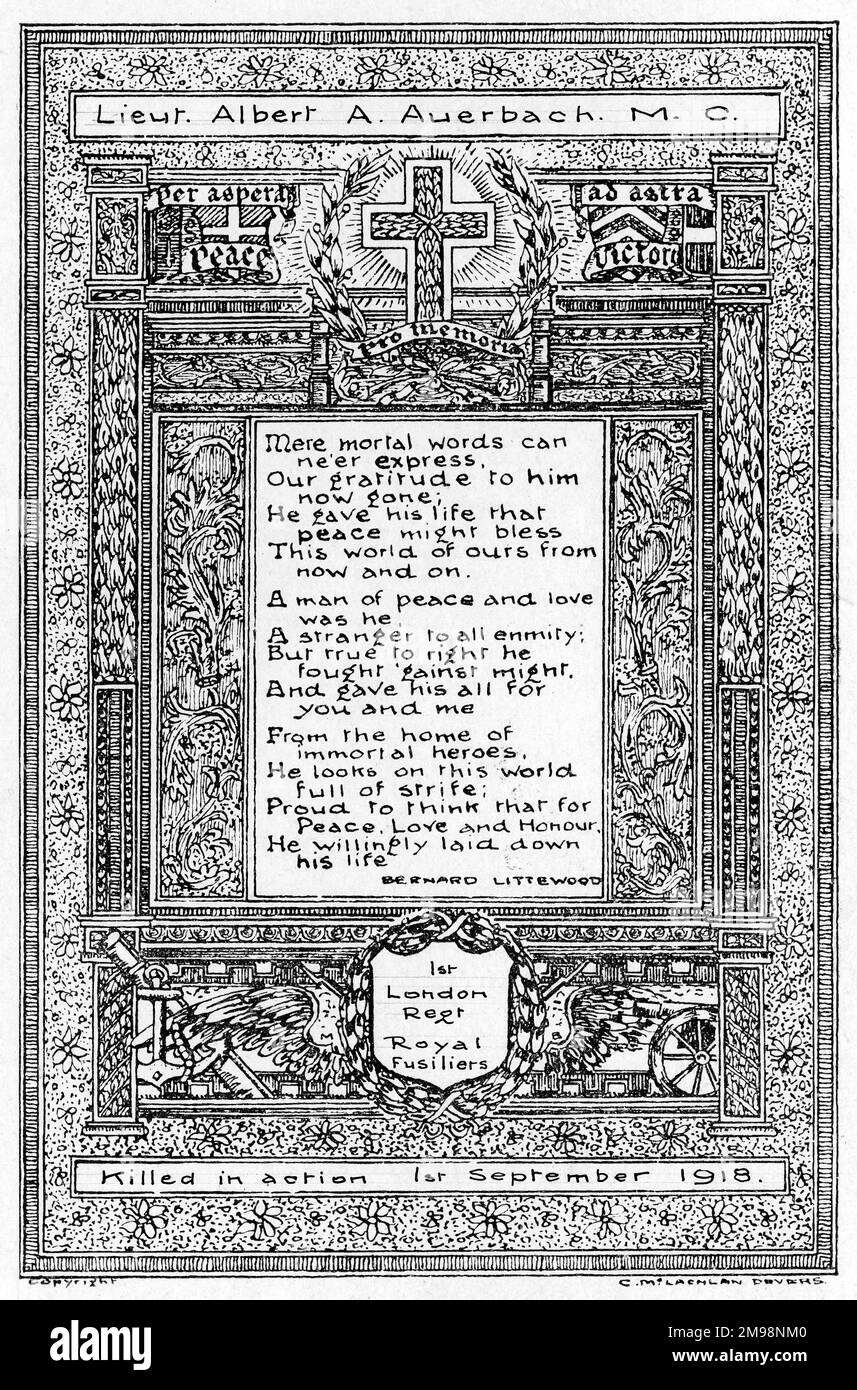 Lieut. Albert A. Auerbach. M. C.
Per aspera
ad astra
Peace
Victory
Pro memoria
Mere mortal words can
ne'er express,
Our gratitude to him
now gone;
He gave his life that
peace might bless
This world of ours from
now and on.
A man of peace and love
was he,
A stranger to all enmity;
But true to right he
fought 'gainst might,
And gave his all for
you and me
From the home of
immortal heroes,
He looks on this world
full of strife;
Proud to think that for
Peace, Love and Honour,
He willingly laid down
his life
BERNARD LITTEWOOD
1st
London
Regt
Royal
Fusiliers
Killed in action 1st September 1918.
Copyright
C. McLACHLAN DEVERS.
alamy
Image ID: 2M98NM0
www.alamy.com